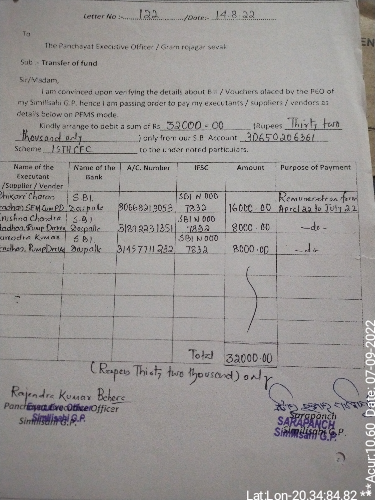 Letter No :- 122 /Date:- 14.8.22
To
The Panchayat Executive Officer / Gram rojagar sevak
Sub :- Transfer of fund
Sir/Madam,
I am convinced upon verifying the details about Bill / Vouchers placed by the PEO of
my Similisahi G.P, hence I am passing order to pay my executants / suppliers / vendors as
details below on PFMS mode.
Kindly arrange to debit a sum of Rs 32000-00 (Rupees Thirty two
thousand only ) only from our S.B. Account 30650206361
Scheme 15TH CFC to the under noted particulars.
Name of the Executant /Supplier / Vender Name of the Bank A/C. Number IFSC Amount Purpose of Payment
Charan S.B.I SBI N 000 Remuneration
30668213053 7832 16000.00 April 22 to July 22
Krishna Chandra S.B.I SBI N 000
31878231351 7832 8000.00 -do-
Kumar S.B.I SBI N 000
31457711232 7832 8000.00 -do-
Total 32000.00
(Rupees Thirty two thousand) only
Rajendra Kumar Behera
Panchayat Executive Officer
Executive Officer
Similisahi G.P.
Similisahi G.P.
Sarapanch
SARAPANCH
Similisahi G.P.
Similisahi G.P.
Lat:Lon-20.34:84.82 ***Acur:10.60 Date: 07-09-2022